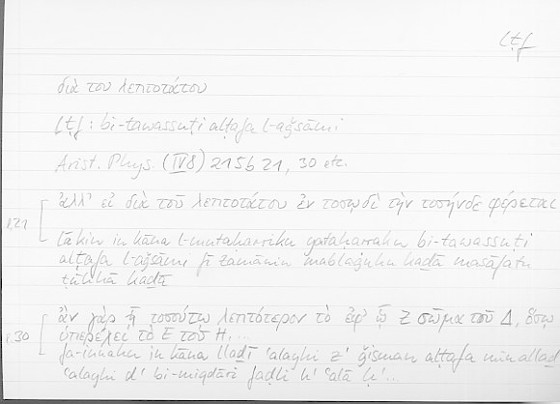 lṭf
διὰ του λεπτοτάτου
lṭf : bi-tawassuṭi alṭafa l-aǧsāmi
Arist. Phys. (IV 8) 215b 21, 30 etc.
b21
ἀλλ' εἰ διὰ τοῦ λεπτοτάτου ἐν τοσῳδὶ τὴν τοσήνδε φέρεται
lākin in kāna l-mutaḥarriku yataḥarraku bi-tawassuṭi
alṭafa l-aǧsāmi fī zamānin mablaġuhu kaḏā masāfatan
ṭūluhā kaḏā
b30
ἂν γὰρ ᾖ τοσούτῳ λεπτότερον τὸ ἐφ' ᾧ Ζ σῶμα τοῦ Δ, ὅσῳ
ὑπερέχει τὸ Ε τοῦ Η, ...
fa-innahu in kāna llaḏī ʿalayhi z' ǧisman alṭafa min allaḏī
ʿalayhi d' bi-miqdāri faḍli h' ʿalā ḥ' ...